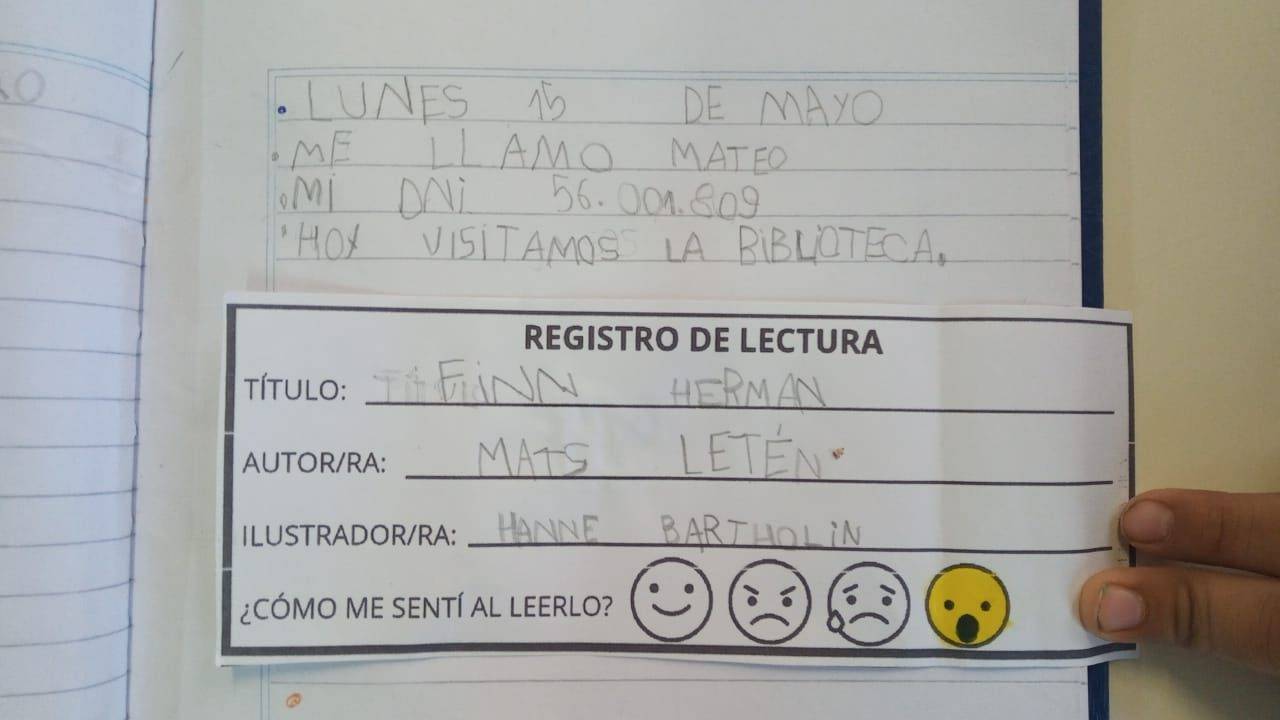 . LUNES 15 DE MAYO
. ME LLAMO MATEO
. Mi DNi 56.001.809
. HOY ViSiTAMOS LA BiBLiOTECA.
REGISTRO DE LECTURA
TÍTULO: FiNN HERMAN
AUTOR/RA: MATS LETÉN
ILUSTRADOR/RA: HANNE BARTHOLiN
¿CÓMO ME SENTÍ AL LEERLO?